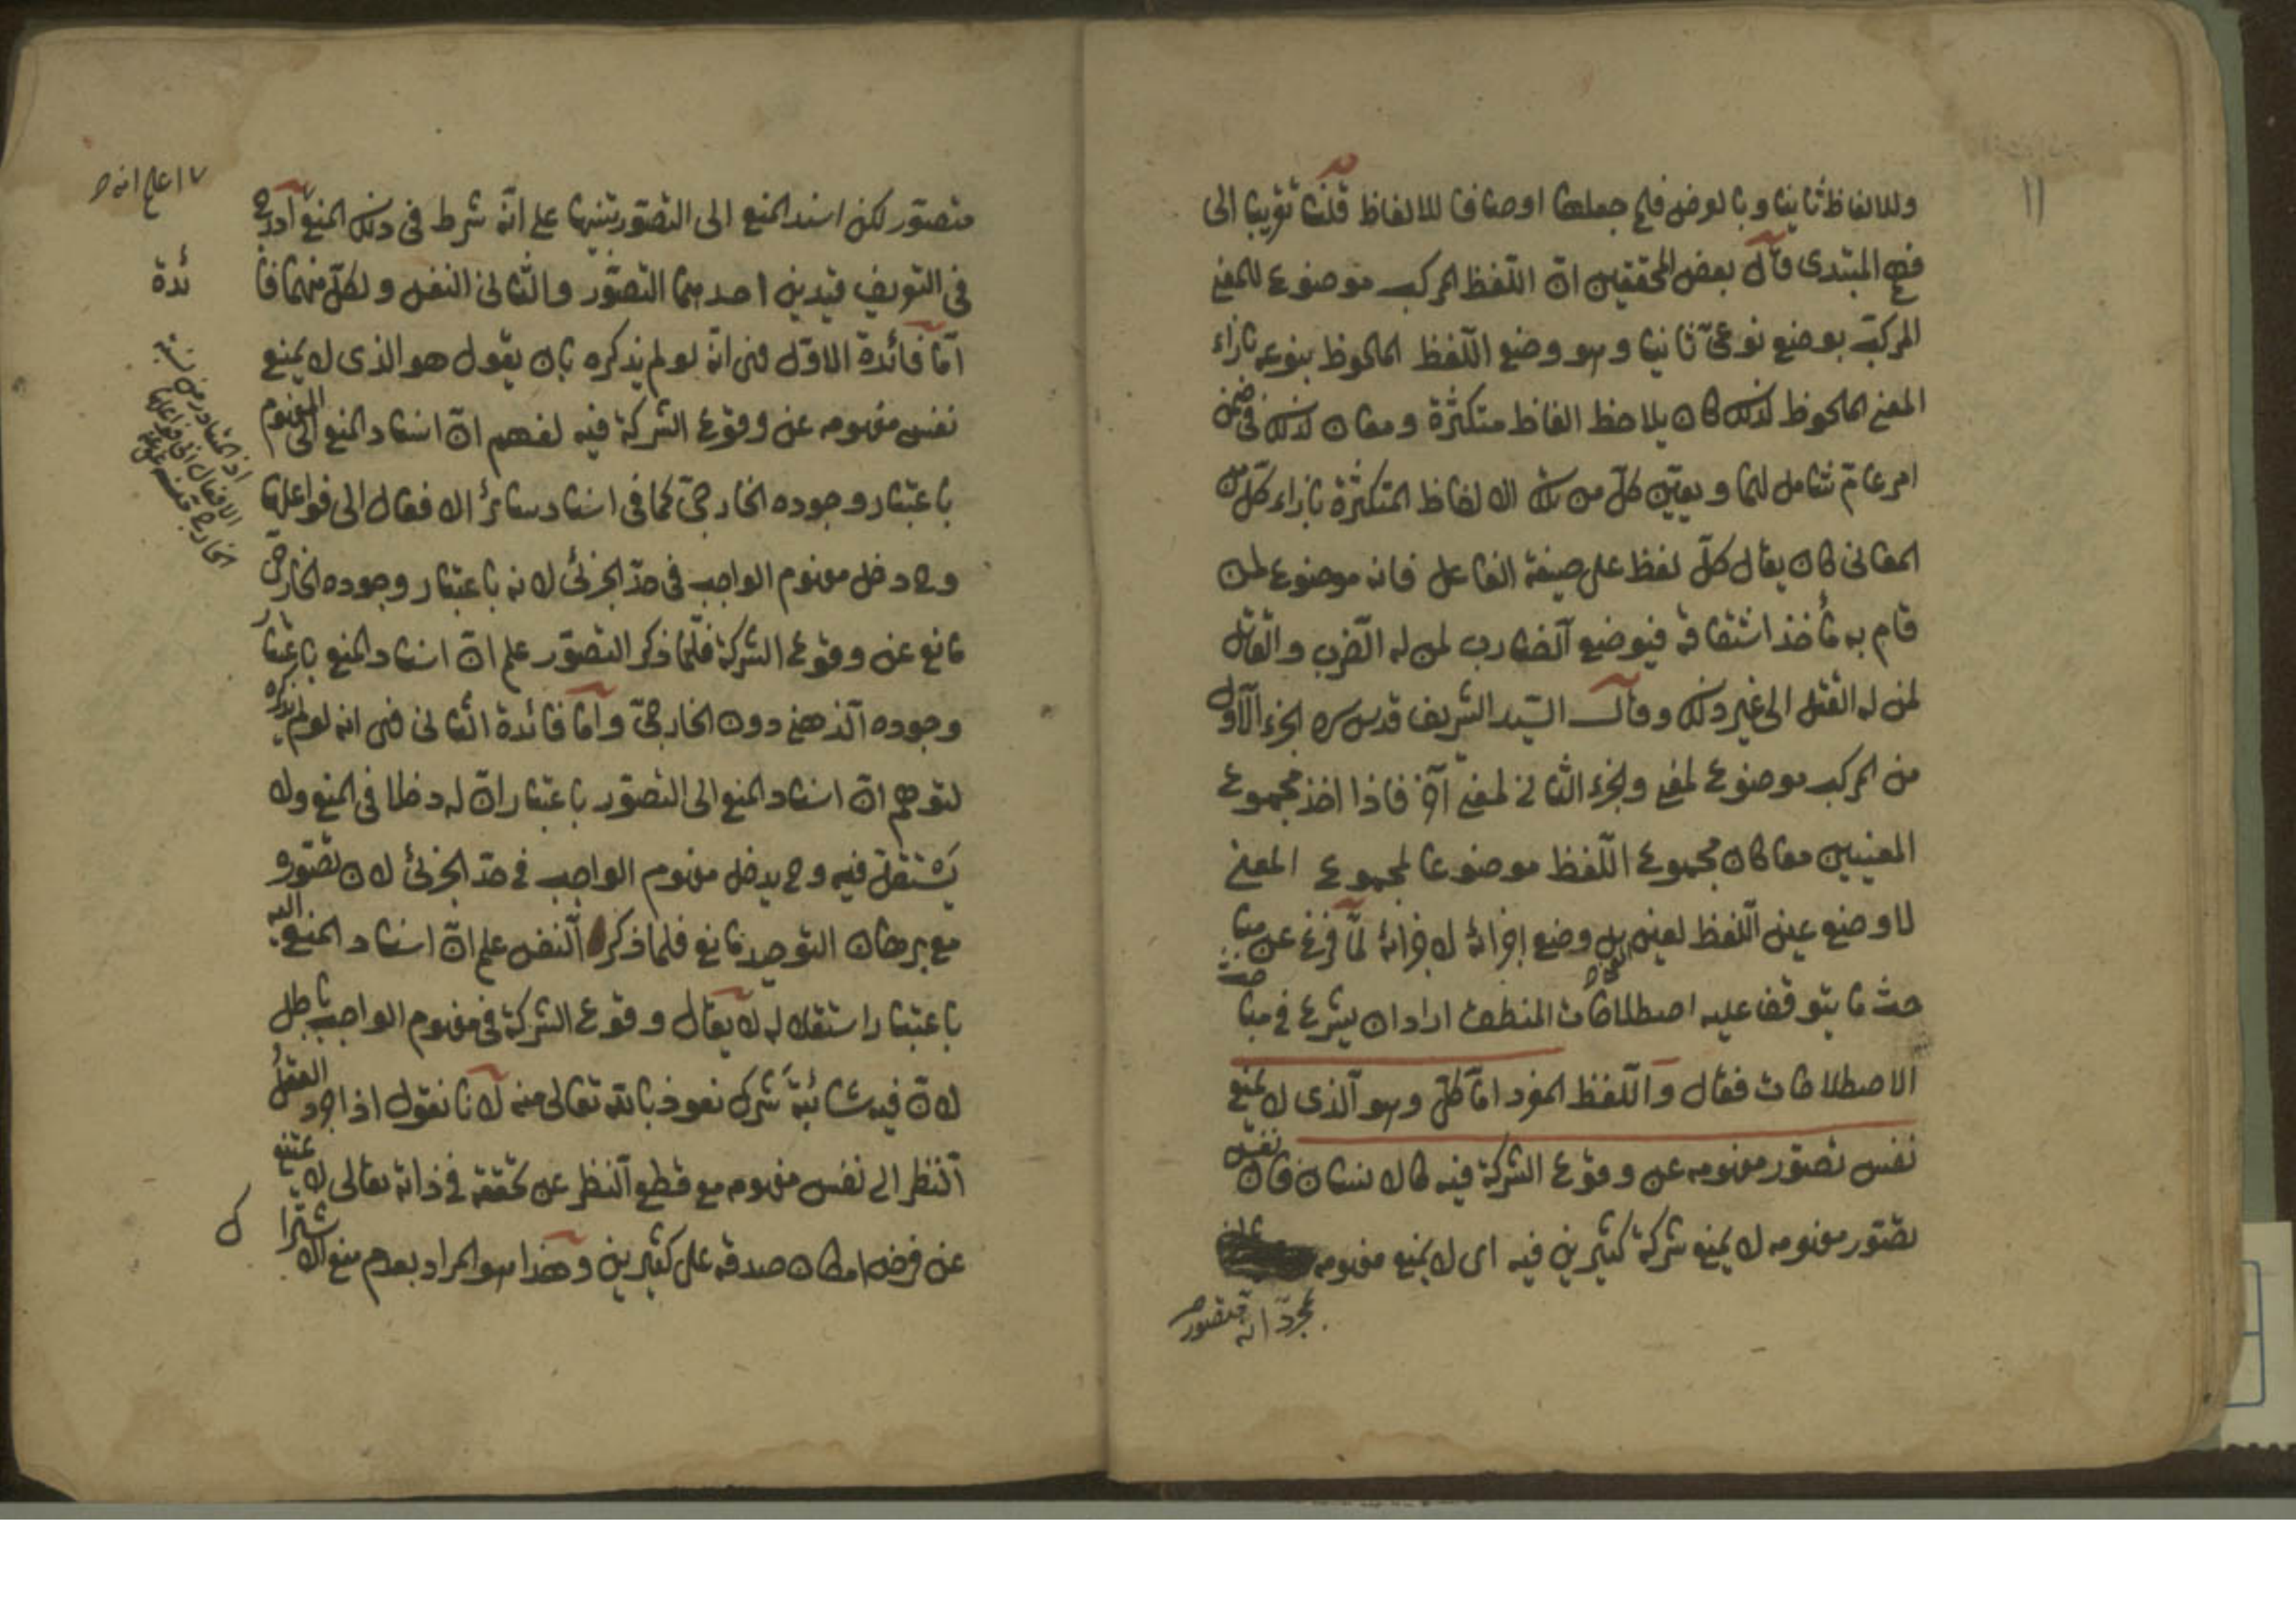 ١١
وللالفاظ ثانيا وبالعرض فلم جعلها اوصافا للالفاظ قلنا تقريبا الى
فهم المبتدى قال بعض المحققين ان اللفظ المركب موضوع للمعنى
المركب بوضع نوعىّ ثانيا وهو وضع اللفظ الملحوظ بنوعه بازاء
المعنى الملحوظ كذلك كان يلاحظ الفاظ متكثرة ومعان كذلك فى ضمن
امر عامّ شامل لها ويعيّن كلّ من تلك الالفاظ المتكثرة بازاء كلّ من
المعانى كان يقال كلّ لفظ على صيغة الفاعل فانه موضوع لمن
قام به مأخذ اشتقاقه فيوضع الضارب لمن له الضرب والقاتل
لمن له القتل الى غير ذلك وقال السيّد الشريف قدس سره الجزء الاوّل
من المركب موضوع لمعنى والجزء الثانى لمعنى آخر فاذا اخذ مجموع
المعنيين معا كان مجموع اللفظ موضوعا لمجموع المعنى
لا وضع عين اللفظ لعين بل وضع اجزائه لاجزائه لمّا فرغ عن مبا
حث ما يتوقف عليه اصطلاحات المنطق اراد ان يشرع فى مباحث
الاصطلاحات فقال واللفظ المفرد امّا كلىّ وهو الذى لا يمنع
نفس تصوّر مفهومه عن وقوع الشركة فيه كالانسان فان نفس
تصوّر مفهومه لا يمنع شركة كثيرين فيه اى لا يمنع مفهومه
بمجرّد انه متصور
متصوّر لكن اسند المنع الى التصوّر تنبيها على انّه شرط فى ذلك المنع
٧ اعلم انه
فى التعريف قيدين احدهما التصوّر والثانى النفس ولكلّ منهما فا
ئدة
امّا فائدة الاوّل فهى انّه لو لم يذكره بان يقول هو الذى لا يمنع
نفس مفهومه عن وقوع الشركة فيه لفهم انّ اسناد المنع الى المفهوم
باعتبار وجوده الخارجىّ كما فى اسناد سائر الافعال الى فواعلها
وح دخل مفهوم الواجب فى حدّ الجزئى لانه باعتبار وجوده الخارجىّ
مانع عن وقوع الشركة فلمّا ذكر التصوّر علم انّ اسناد المنع باعتبار
وجوده الذهنى دون الخارجىّ وامّا فائدة الثانى فهى انه لو لم يذكره
لتوهم انّ اسناد المنع الى التصوّر باعتبار انّ له دخلا فى المنع ولا
يستقلّ فيه وح يدخل مفهوم الواجب فى حدّ الجزئى لان تصوّره
مع برهان التوحيد مانع فلما ذكر النفس علم انّ اسناد المنع اليه
باعتبار استقلاله لا يقال وقوع الشركة فى مفهوم الواجب باطل
لانّ فيه شائبة شرك نعوذ بالله تعالى منه لانا نقول اذا جرد العقل
النظر الى نفس مفهومه مع قطع النظر عن تحققه فى ذاته تعالى لا يمتنع
عن فرض امكان صدقه على كثيرين وهذا هو المراد بعدم منع الاشترا
ك